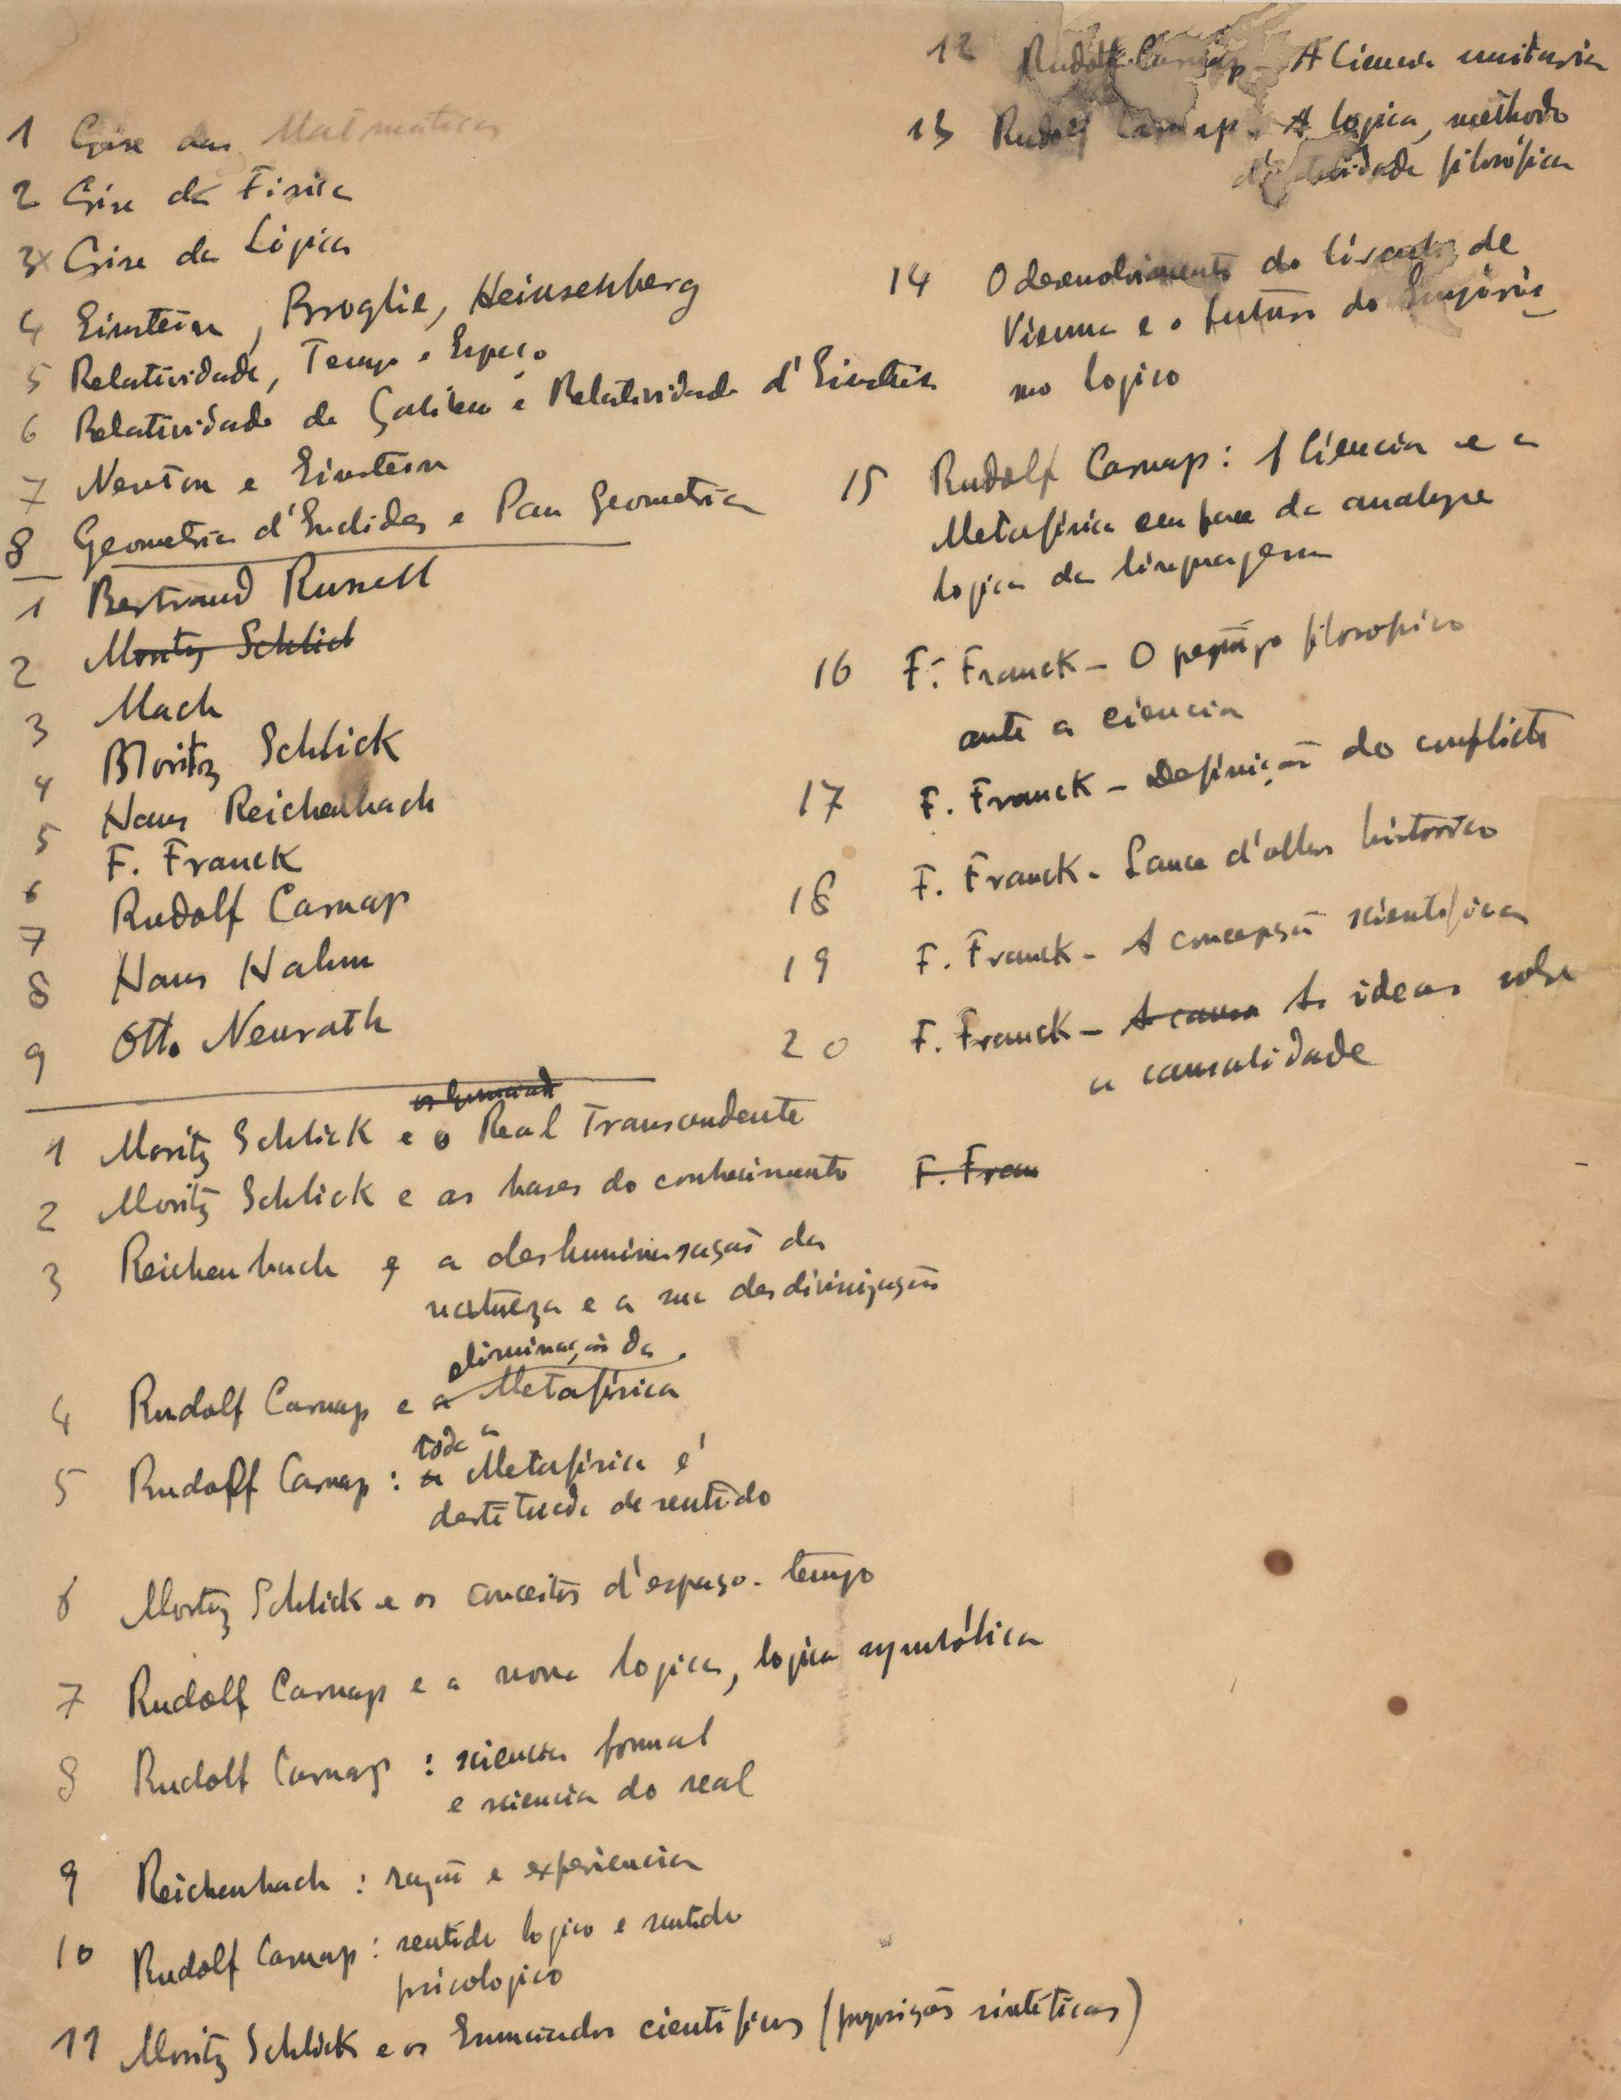 1 Crise das Matmaticas
2 Crise da Fisica
3x Crise da Lógica
4 Einstein, Broglie, Heinsenberg
5 Relatividade, Tempo e Espaço
6 Relatividade de Galileu e Relatividade d'Einstein
7 Newton e Einstein
8 Geometria d'Euclides e Pan Geometria
1 Bertrand Russell
2 Moritz Schlick
3 Mach
4 Moritz Schlick
5 Hans Reichenbach
6 F. Franck
7 Rudolf Carnap
8 Hans Hahn
9 Otto Neurath
1 Moritz Schlick e o Real Transcendente
2 Moritz Schlick e as bases do conhecimento
3 Reichenbach e a deshuminisação da
natureza e a sua desdivinização
eliminação da
4 Rudolf Carnap e a Metafísica
toda a
5 Rudolf Carnap: a Metafísica é
destituida de sentido
6 Moritz Schlick e os conceitos d'espaço-tempo
7 Rudolf Carnap e a nova logica, logica symbólica
8 Rudolf Carnap: sciencia formal
e sciencia do real
9 Reichenbach: razão e experiencia
10 Rudolf Carnap: sentido logico e sentido
psicologico
11 Moritz Schlick e os Enunciados científicos (proposições sintéticas)
12 Rudolf Carnap - A Ciencia unitaria
13 Rudolf Carnap. A logica, méthodo
filosófica
14 O desenvolvimento do Circulo de
Vienna e o futuro do Empiris
mo logico
15 Rudolf Carnap: A Ciencia e a
Metafísica em face da analyse
logica da linguagem
16 F. Franck - O filosofico
ante a ciencia
17 F. Franck - Definição do conflicto
18 F. Franck - Lance d'olhos historico
19 F. Franck - A concepção scientifica
20 F. Franck - A causa As ideas sobre
a causalidade
F. Fran